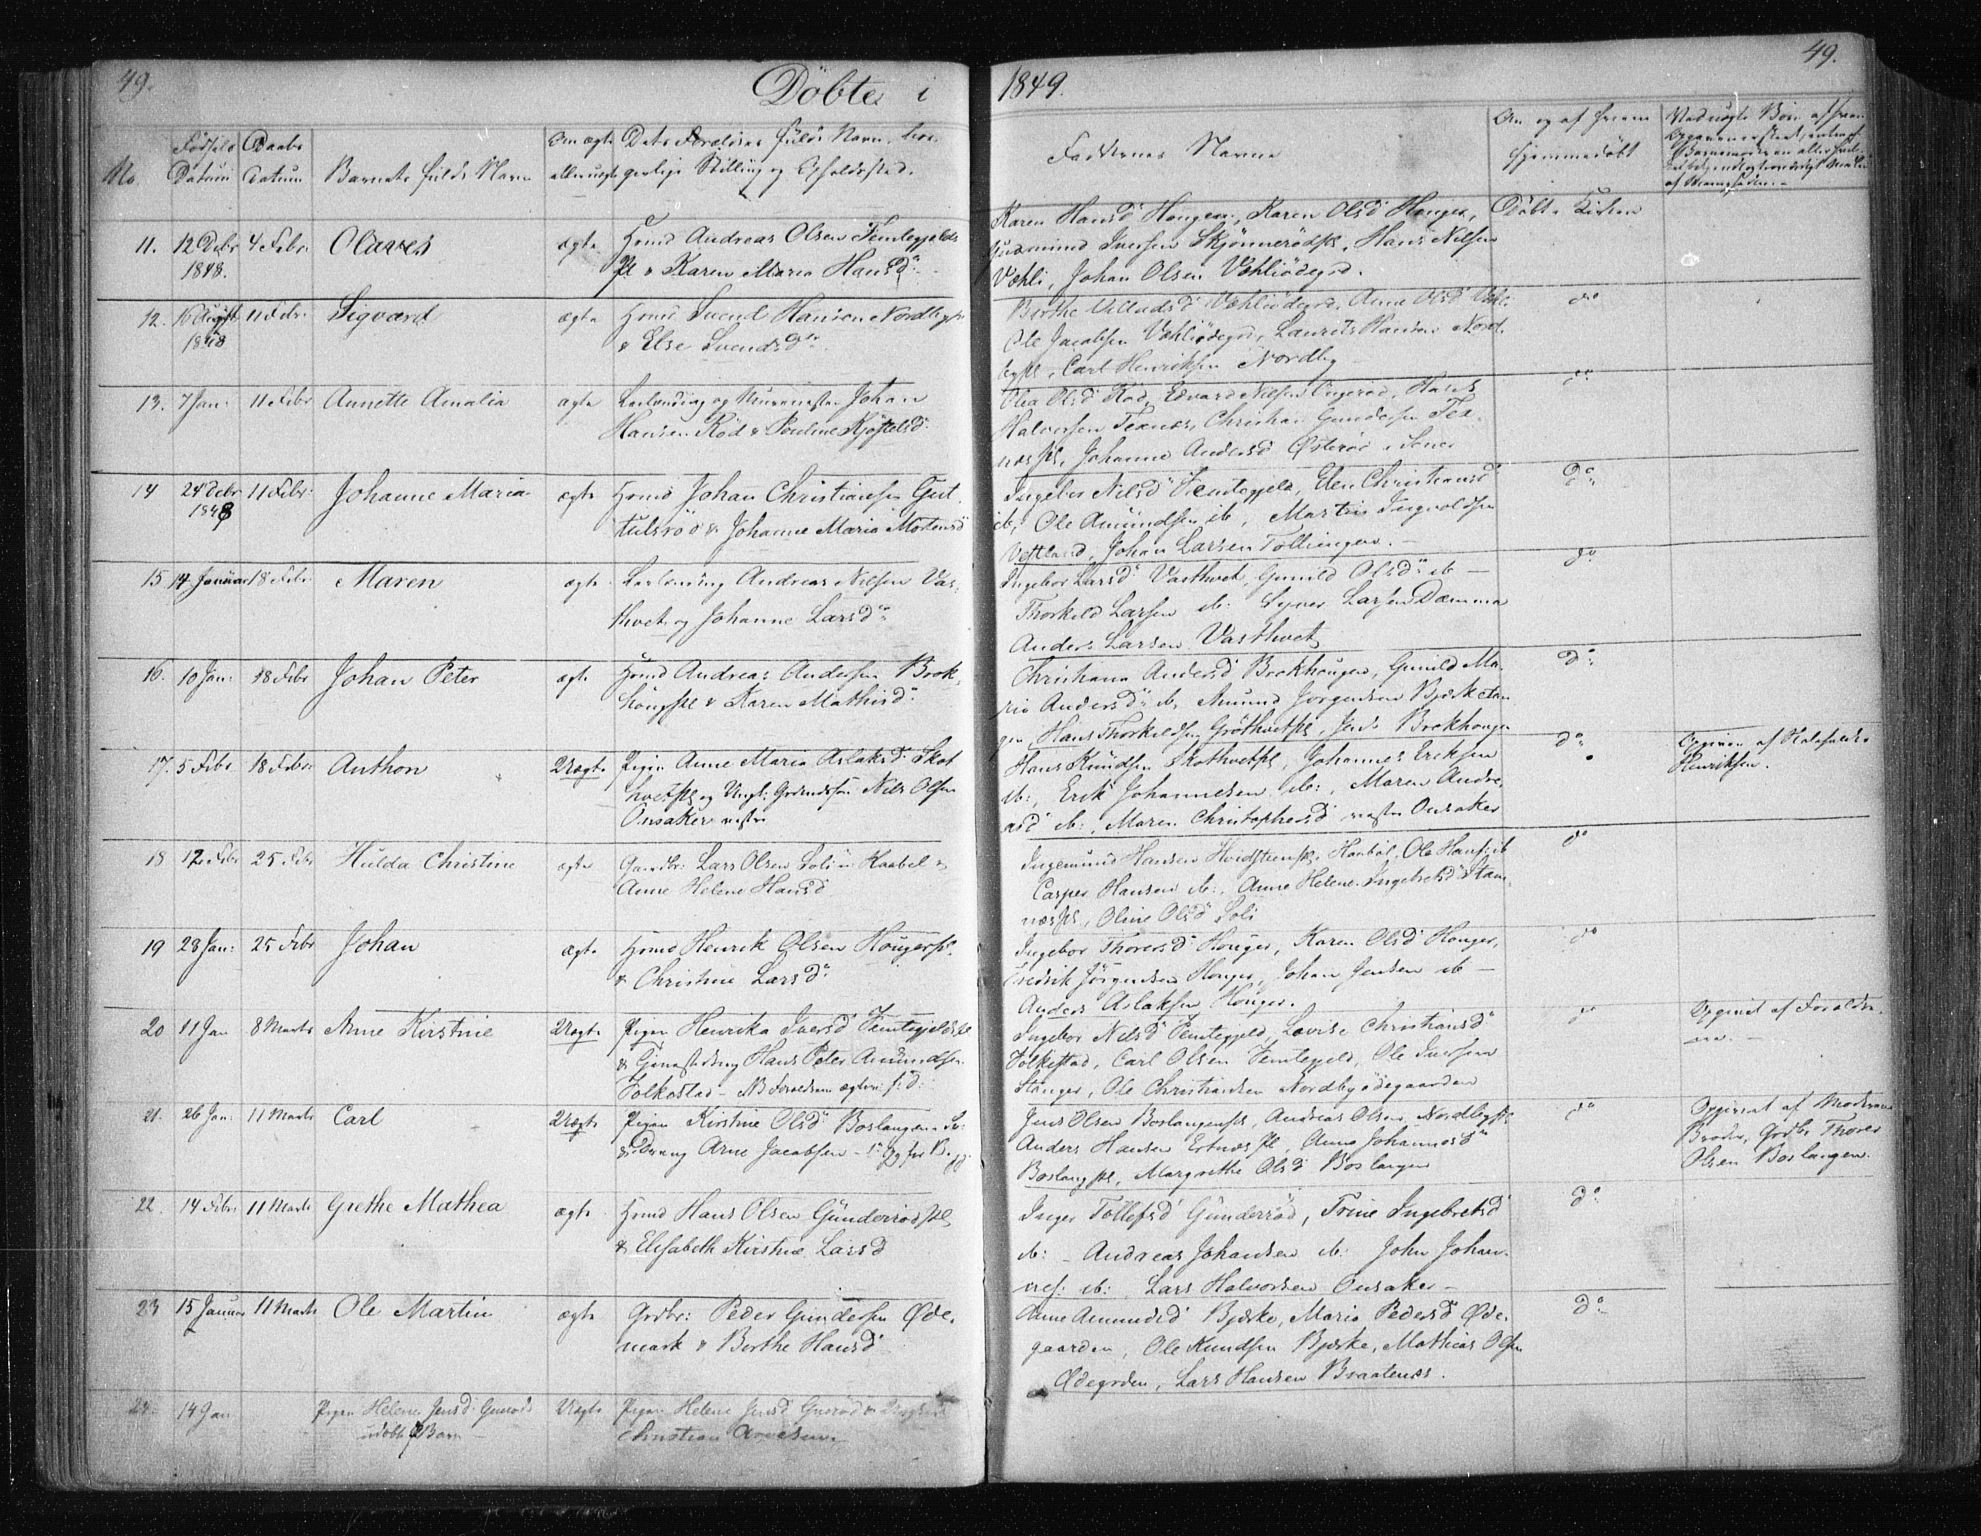 49.
Döbte i
1849.
49.
No
Fødsels Datum
Daabs Datum
Barnets fulde Navn
Om ægte eller uægte
Dets Forældres fulde Navn, borgerlige Stilling og Opholdssted.
Faddernes Navne
Om og af hvem hjemmedøbt
11. 12 Debr 4 Febr. Olaves ægte Hsmd Andreas Olsen Femtegjelds
1848. Pl & Karen Maria Hansd.
Karen Hansd Hougen, Karen Olsd Houger, Döbt i Kirken
Gudmund Iversen Skjønnerödpl, Hans Nilsen
Væhli, Johan Olsen Væhliödegrd.
12. 16 August 11 Febr. Sigvard ægte Hsmd Svend Hansen Nordbypl
1848 & Else Svendsd
Berthe Willadsd Væhliödegrd, Anne Olsd
Ole Jacobsen Væhliödegrd, Laurits Hansen Nord-
bypl, Carl Henriksen Nordby
do
13. 7 Jan: 11 Febr Annette Amalia ægte Johan
Hansen Röd & Pouline Kjøstelsd.
Olia Olsd Röd, Edvard Nilsen Ongeröd, Hans
Halvorsen Texnæs, Christian Gundersen Tex-
næspl, Johanne Andersd Østeröd
do
14 24 Debr 11 Febr: Johanne Maria ægte Hsmd Johan Christiansen Gut-
1848 tulsröd & Johanne Maria Mortensd
Ingebor Nilsd Femtegjeld, Elen Christiansd
ib, Ole Amundsen ib, Martin Ingvoldsen
Vestland, Johan Larsen Tollinger. –
Do
15 14 Januar 18 Febr Maren ægte Leilending Andreas Nilsen Vas-
thvet og Johanne Larsd
Ingebor Larsd Vasthvet, Gunild Olsd ib –
Thorkild Larsen ib: Syver Larsen Damma
Anders Larsen Vasthvet
do
16. 10 Jan: 18 Febr Johan Peter ægte Hsmd Andreas Andersen Brek-
hougpl & Karen Mathisd.
Christiana Andersd Brekhougen, Gunild Ma-
ria Andersd ib, Amund Jørgensen Bjerketan-
gen, Hans Thorkildsen Gröthvetpl, Jens Brekhougen
Do
17. 5 Febr 18 Febr. Anthon Uægte Pigen Anne Maria Aslaksd Skot-
hvetpl og Ungk: Grdmdssøn Nils Olsen
Onsaker
Hans Knudsen Skothvetpl, Johannes Eriksen
ib:, Erik Johannesen ib:, Maren Andre-
asd ib:, Maren Christophersd Onsaker
do
Opgiven af
Henriksen.
18 12 Febr 25 Febr Hulda Christine ægte Lars Olsen Soli Haabel &
Anne Helene Hansd
Ingemund Hansen Hvidstenpl, Haaböl, Ole Hans: ib
Casper Hansen ib:, Anne Helene Ingebretsd Stam-
næspl, Oline Olsd Soli
do
19 28 Jan: 25 Febr Johan ægte Hsmd Henrik Olsen Hougerpl
& Christine Larsd
Ingebor Thoresd Houger, Karen Olsd Houger,
Fredrik Jörgensen Houger, Johan Jensen ib –
Anders Aslaksen Houger.
do
20 11 Jan 8 Marts Anne Kirstine Uægte Pigen Henrika Iversd Femtegjeldspl
& Hans Peter Amundsen
Folkestad – NB Forældrene ægtevi:
Ingebor Nilsd Femtegjeld, Lovise Christiansd
Folkestad, Carl Olsen Femtegjeld, Ole Iversen
Stanger, Ole Christiansen Nordbyödegaarden
do
Opgivet af Forældre-
ne. –
21. 26 Jan: 11 Marts Carl Uægte Pigen Kirstine Olsd Boslangen &
Dreng Arne Jacobsen
Jens Olsen Boslangenpl, Andreas Olsen Nordbypl
Anders Hansen Ertnæspl, Anna Johannesd
Boslangpl, Margrethe Olsd Boslangen
do
Opgivet af Moderens
Broder, Grdbr Thorer
Olsen Boslangen.
22. 14 Febr 11 Marts Grethe Mathea ægte Hsmd Hans Olsen Gunderrödpl
& Elisabeth Kirstine Larsd
Inger Tollefsd Gunderröd, Trine Ingebretsd
ib: – Andreas Johansen ib: John Johan-
nes: ib:, Lars Halvorsen Onsaker –
do
23 15 Januar 11 Marts Ole Martin ægte Grdbr: Peder Gundersen Øde-
mark & Berthe Hansd
Anne Amundsd Bjerke, Maria Pedersd Øde-
gaarden, Ole Knudsen Bjerke, Mathias Olsen
Ødegrden, Lars Hansen Braatenæs.
Do
24. 14 Jan Pigen Helene Jensd Gueröds
udøbte Barn
Uægte Pigen Helene Jensd Gueröd &
Christian Arvesen